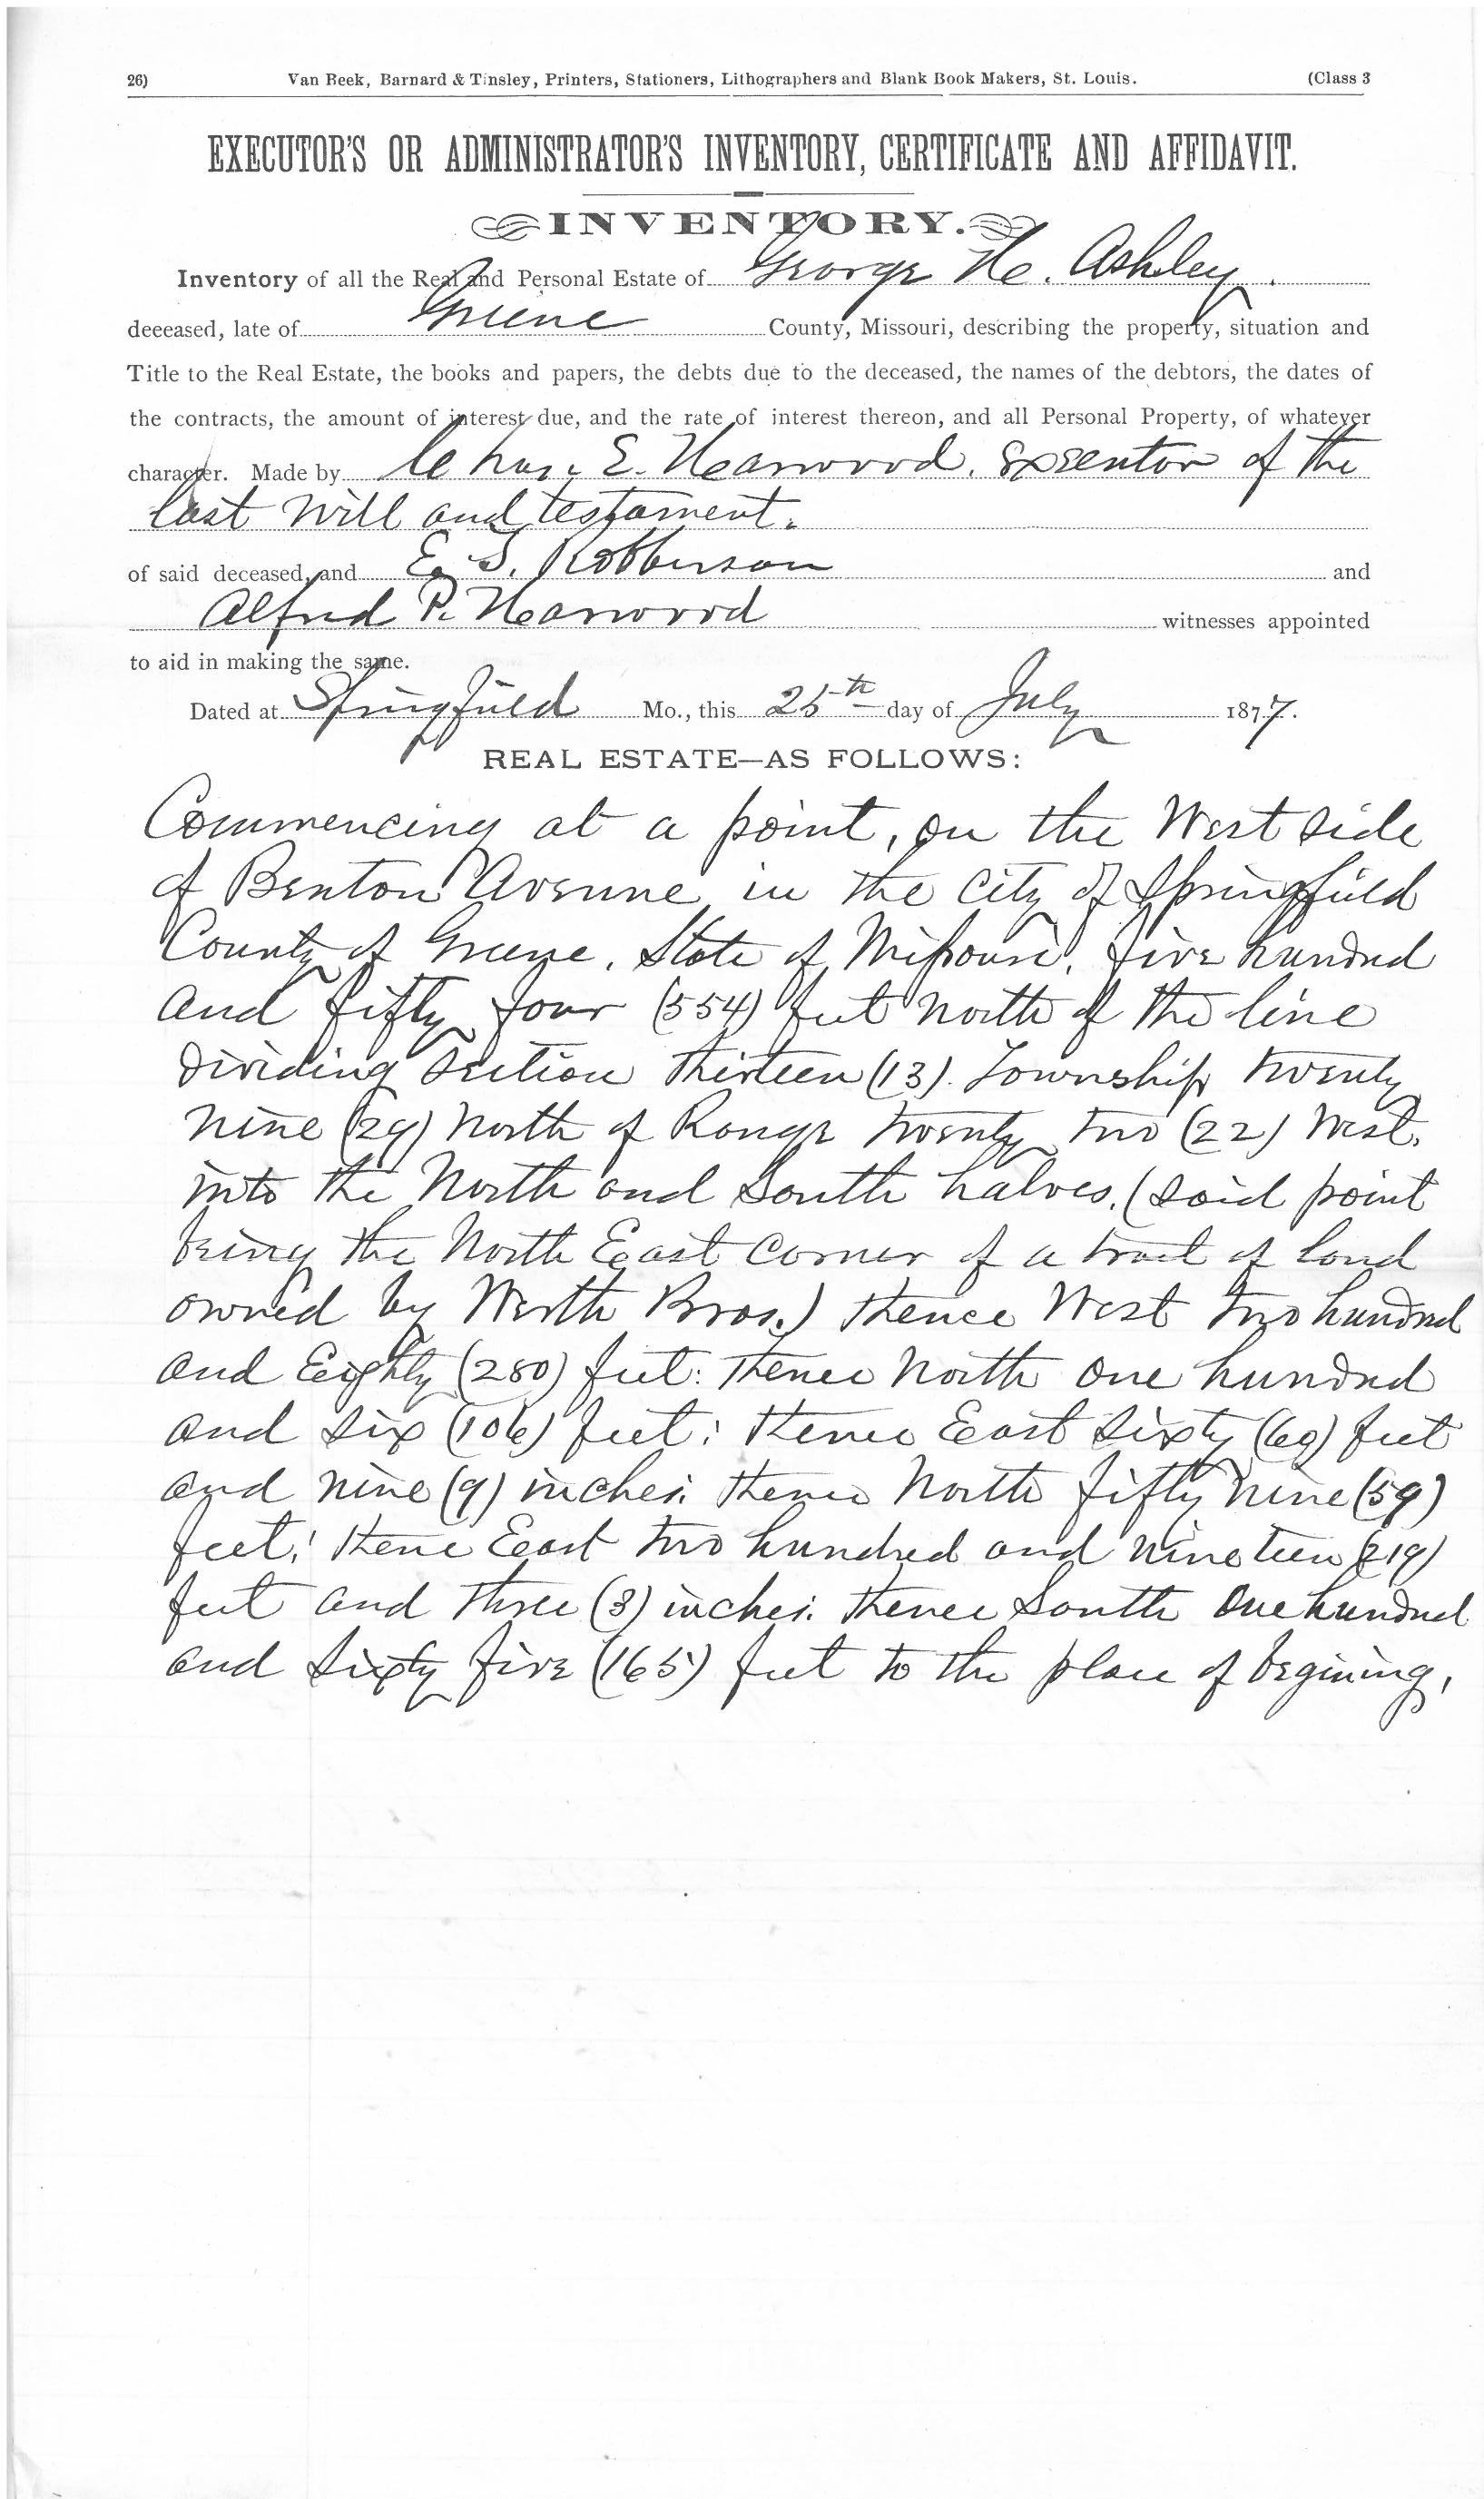 26) Van Beek, Barnard & Tinsley, Printers, Stationers, Lithographers and Blank Book Makers, St. Louis. (Class 3
EXECUTOR'S OR ADMINISTRATOR'S INVENTORY, CERTIFICATE AND AFFIDAVIT.
INVENTORY.
Inventory of all the Real and Personal Estate of George H. Ashley.
deceased, late of Greene County, Missouri, describing the property, situation and
Title to the Real Estate, the books and papers, the debts due to the deceased, the names of the debtors, the dates of
the contracts, the amount of interest due, and the rate of interest thereon, and all Personal Property, of whatever
character. Made by Chas. E. Harwood, Executor of the
last will and testament.
of said deceased, and E. T. Robberson and
Alfred P. Harwood witnesses appointed
to aid in making the same.
Dated at Springfield Mo., this 25th day of July 1877.
REAL ESTATE—AS FOLLOWS:
Commencing at a point, on the West side
of Benton Avenue in the City of Springfield
County of Greene, State of Missouri, five hundred
and fifty four (554) feet North of the line
dividing section thirteen (13). Township twenty
nine (29) North of Range twenty two (22) West.
into the North and South halves, (said point
being the North East corner of a tract of land
owned by Werth Bros.) thence West two hundred
and Eighty (280) feet: thence North one hundred
and six (106) feet; thence East sixty (60) feet
and nine (9) inches; thence North fifty nine (59)
feet; thence East two hundred and nineteen (219)
feet and three (3) inches; thence South one hundred
and sixty five (165) feet to the place of begining,